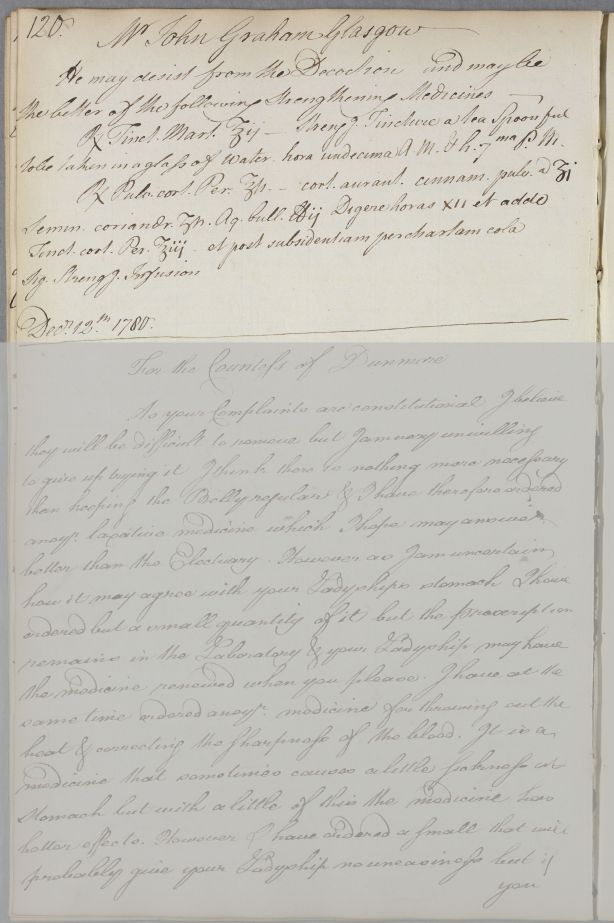 120.
Mr. John Graham Glasgow
He may desist from the Decoction and may be
the better of the following Strengthening Medicines
℞ Tinct. Mart. ʒij — Streng. Tincture a tea Spoonful
to be taken in a glass of water hora undecima A.M. & h. 7ma P.M.
℞ Pulv. cort. Per. ℥ſs. — cort. aurant. cinnam. pulv. a ʒi
Semin. coriandr. ʒſs. Aq. bull. ℔ij Digere horas XII et adde
Tinct. cort. Per. ℥iij et post subsidentiam per chartam cola
Sig. Streng. Infusion
Decr. 12th 1780.
For the Countess of Dunmore
As your Complaints are constitutional I believe
they will be difficult to remove but I am very unwilling
to give up trying it I think there is nothing more necessary
than keeping the Belly regular & I have therefore ordered
anoyr. laxative medicine which I hope may answer
better than the Electuary. However as I am uncertain
how it may agree with your Ladyships stomach I have
ordered but a small quantity of it but the prescription
remains in the Laboratory & your Ladyship may have
the medicine renewed when you please. I have at the
same time ordered anoyr. medicine for throwing out the
heat & correcting the sharpness of the blood. It is a
medicine that sometimes causes a little sickness at
stomach but with a little of this the medicine has
better effects. However I have ordered a small that will
probably give your Ladyship no uneasiness but if
you